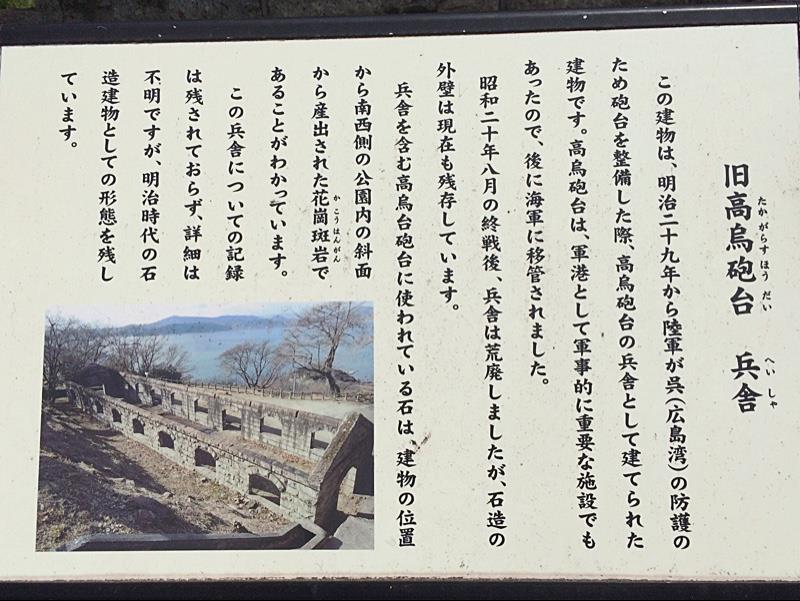 旧高烏砲台　兵舎
たかがらすほうだい　へいしゃ
この建物は、明治二十九年から陸軍が呉（広島湾）の防護の
ため砲台を整備した際、高烏砲台の兵舎として建てられた
建物です。高烏砲台は、軍港として軍事的に重要な施設でも
あったので、後に海軍に移管されました。
昭和二十年八月の終戦後、兵舎は荒廃しましたが、石造の
外壁は現在も残存しています。
兵舎を含む高烏台砲台に使われている石は、建物の位置
から南西側の公園内の斜面
から産出された花崗斑岩で
かこうはんがん
あることがわかっています。
この兵舎についての記録
は残されておらず、詳細は
不明ですが、明治時代の石
造建物としての形態を残し
ています。